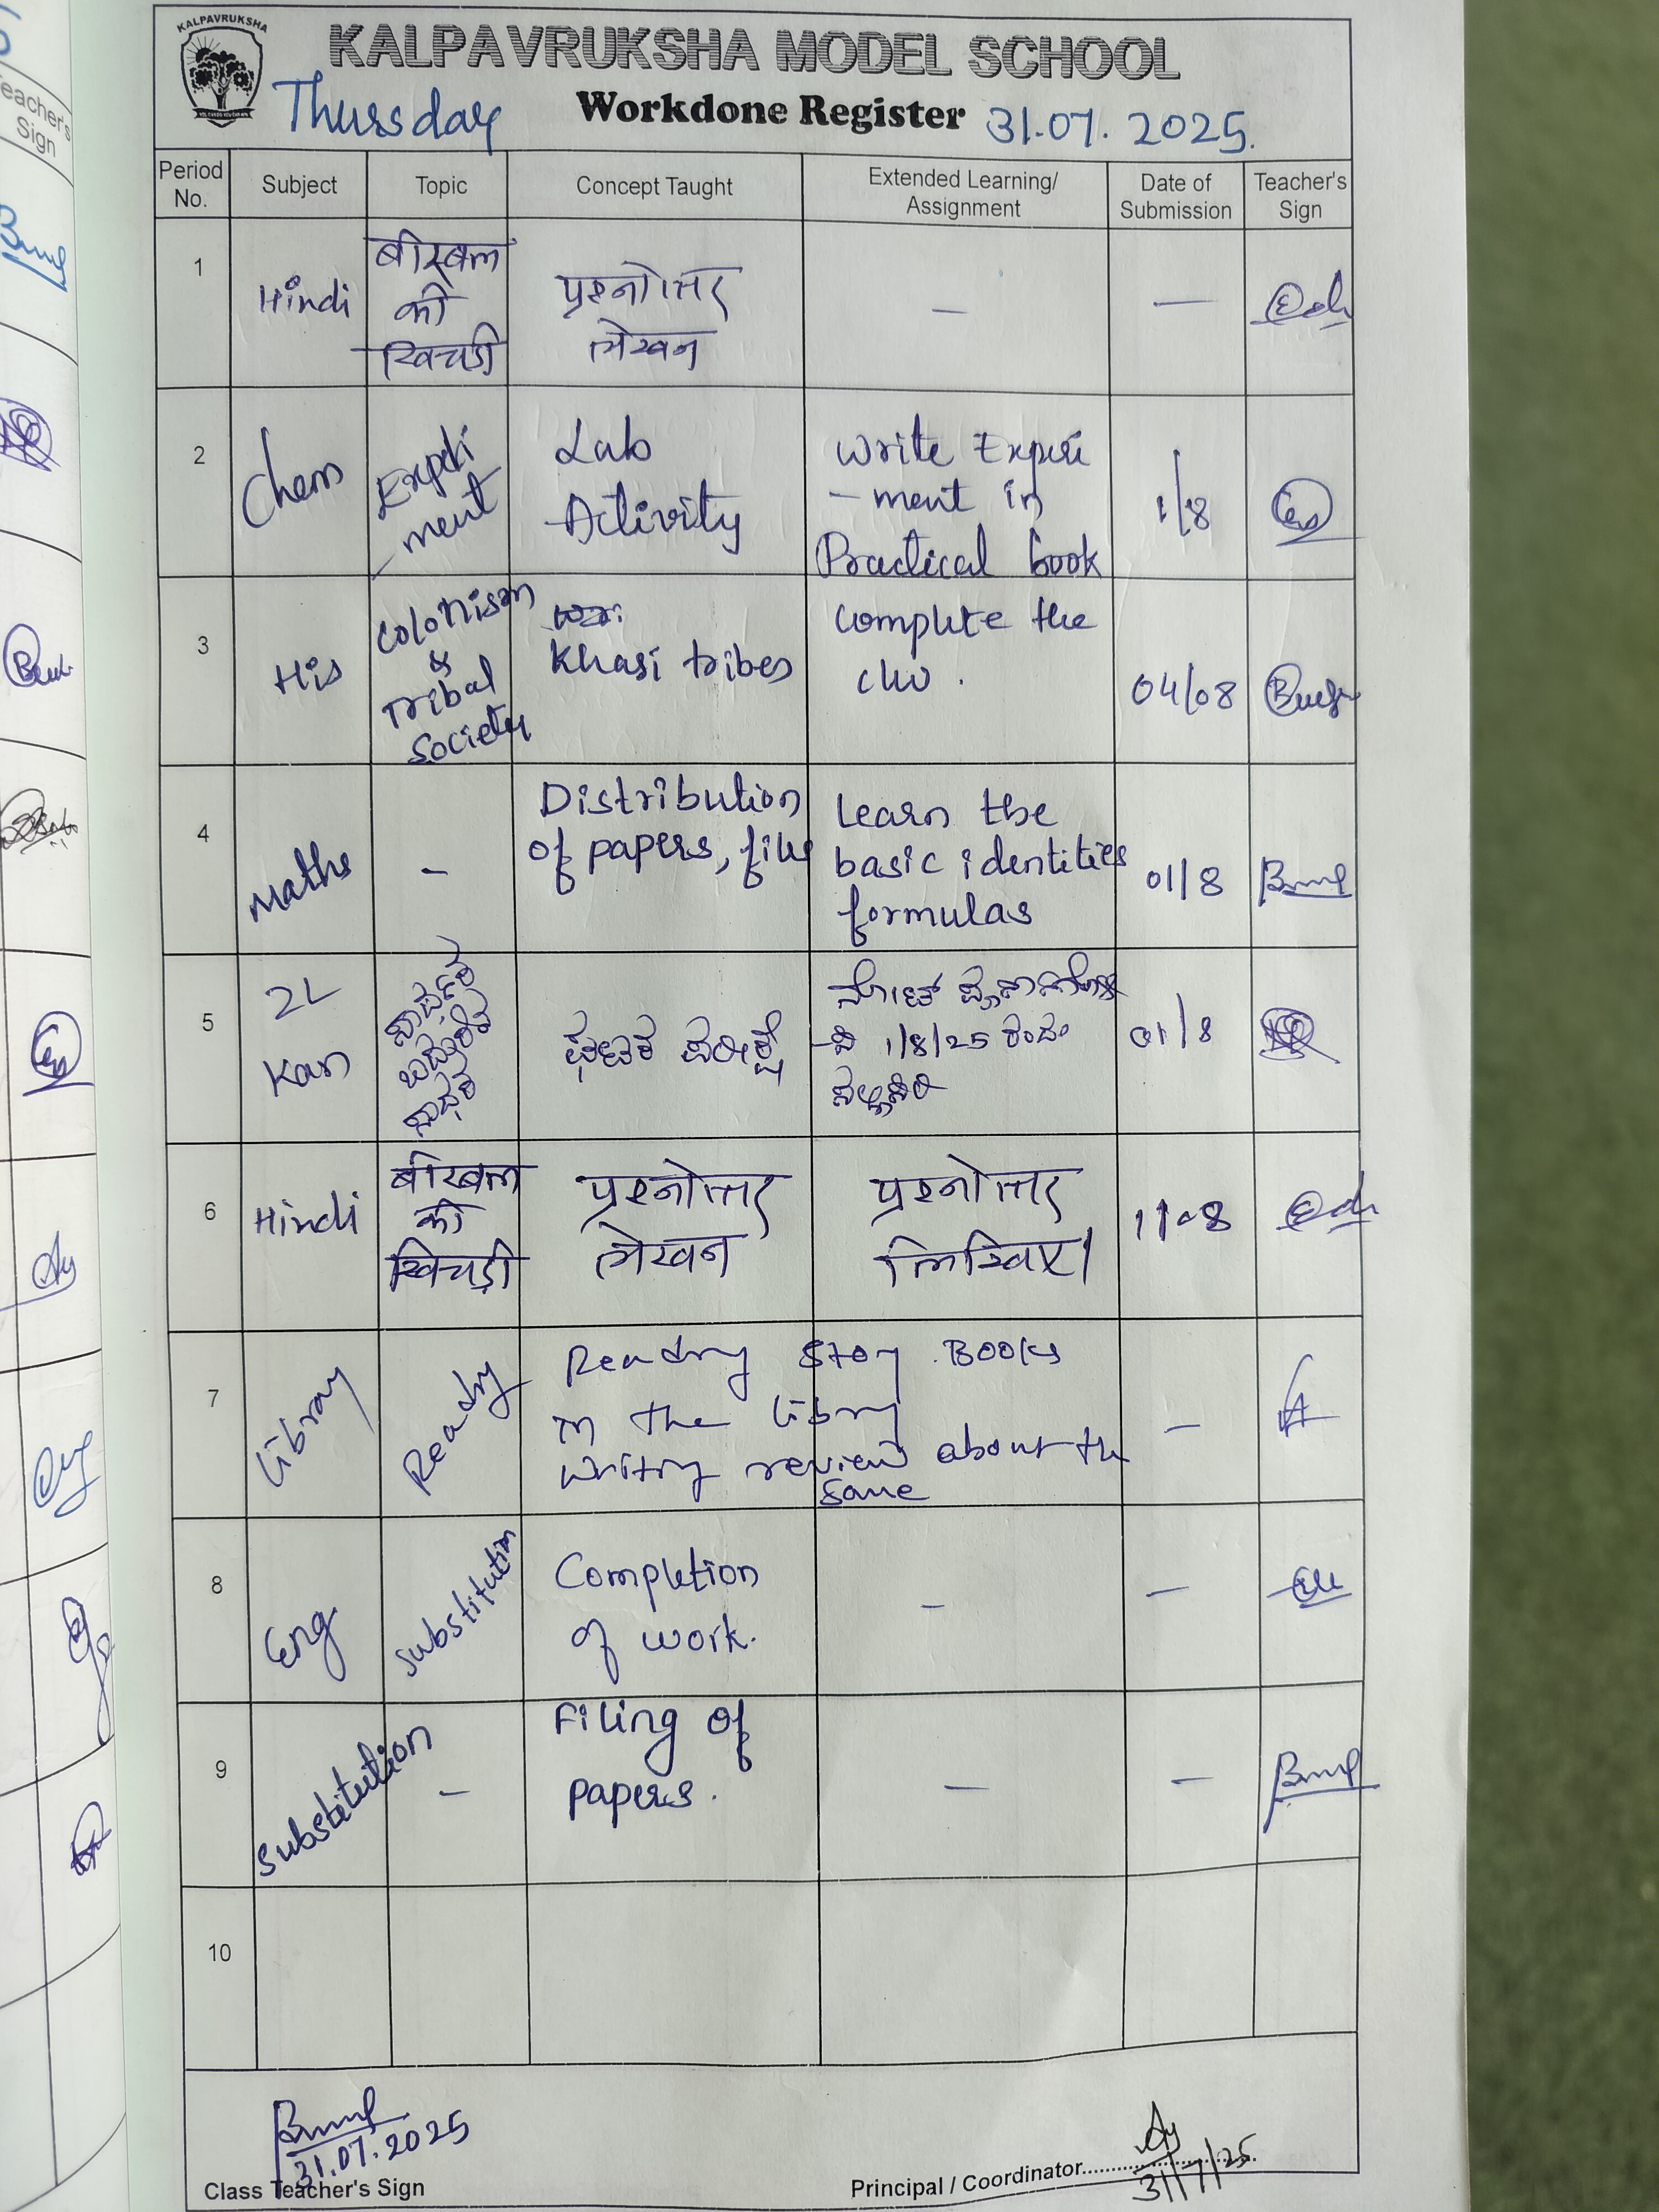 KALPAVRUKSHA
KALPAVRUKSHA MODEL SCHOOL
Thursday Workdone Register 31.07.2025.
Period No. Subject Topic Concept Taught Extended Learning/ Assignment Date of Submission Teacher's Sign
1 Hindi
बीरबल
की
खिचडी
प्रश्नोत्तर
लेखन
–
—
2 Chem
Experi
-ment
Lab
Activity
Write Experi
-ment in
Practical book
1/8
3 His
Colonism
&
Tribal
Society
Khasi tribes
complete the
cw.
04/08
4 Maths
-
Distribution
of papers, files
Learn the
basic identities
formulas
01/8
5 2L
Kan
ಘಟಕ ಪರೀಕ್ಷೆ
1/8/25
01/8
6 Hindi
बीरबल
की
खिचड़ी
प्रश्नोत्तर
लेखन
प्रश्नोत्तर
लिखिए।
1/08
7 Library
Reading
Reading Story Books
in the library
writing review about the
same
–
8 Eng
Substitution
Completion
of work.
–
–
9 Substitution
–
Filing of
papers.
—
–
10
31.07.2025
Class Teacher's Sign
Principal / Coordinator
31/7/25
Teacher's
Sign